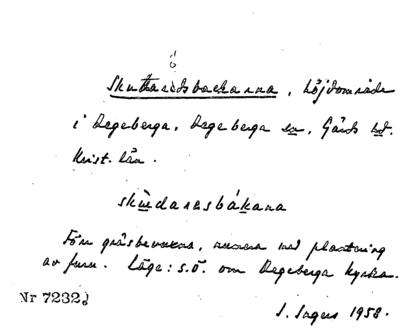 Skuttaredsbackarna, höjdområde
i Degeberga, Degeberga sn, Gärds hd.
Krist. län.
skùdarasbákana
Förr gräsbevuxna, numera med plantering
av furu. Läge: s.ö. om Degeberga kyrka.
Nr 7232.
I. Ingers 1958.